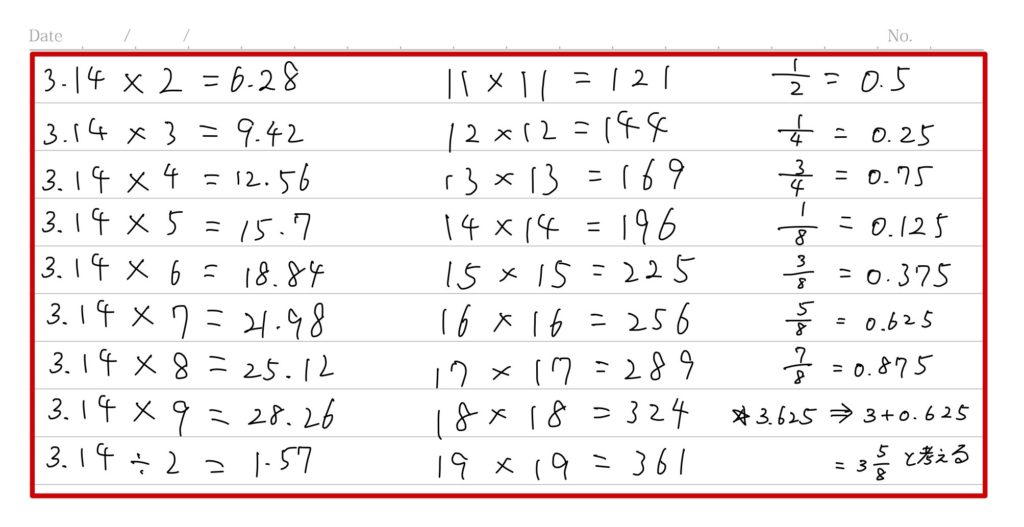 Date / / No.
3.14 × 2 = 6.28 11 × 11 = 121 1/2 = 0.5
3.14 × 3 = 9.42 12 × 12 = 144 1/4 = 0.25
3.14 × 4 = 12.56 13 × 13 = 169 3/4 = 0.75
3.14 × 5 = 15.7 14 × 14 = 196 1/8 = 0.125
3.14 × 6 = 18.84 15 × 15 = 225 3/8 = 0.375
3.14 × 7 = 21.98 16 × 16 = 256 5/8 = 0.625
3.14 × 8 = 25.12 17 × 17 = 289 7/8 = 0.875
3.14 × 9 = 28.26 18 × 18 = 324 *3.625 ⇒ 3+0.625
3.14 ÷ 2 = 1.57 19 × 19 = 361 = 3 5/8 と考える